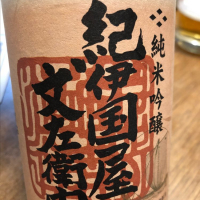 純米吟醸
紀伊国屋
文左衛門